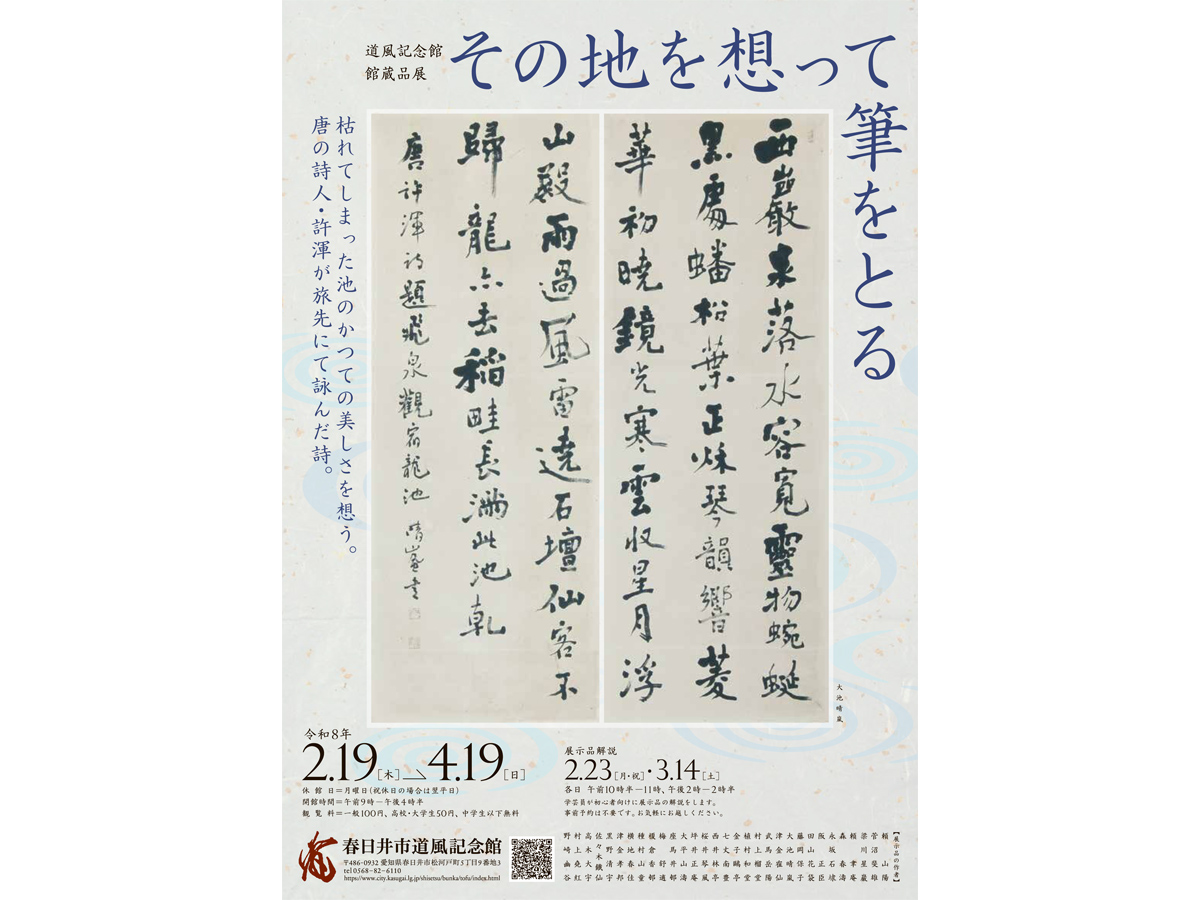 道風記念館
館蔵品展
その地を想って
筆をとる
枯れてしまった池のかつての美しさを想う。
唐の詩人・許渾が旅先にて詠んだ詩。
西巖泉落水容寬靈物蜿蜒
黒處蟠松葉正秌琴韻響菱
華初曉鏡光寒雲収星月浮
山殿雨過風雷遶石壇仙客不
歸龍亦去稻畦長滿此池乾
唐許渾詩題飛泉觀宿龍池 晴嵐書
大池晴嵐
令和8年
2.19[木]→4.19[日]
休館日=月曜日(祝休日の場合は翌平日)
開館時間=午前9時−午後4時半
観覧料=一般100円、高校・大学生50円、中学生以下無料
展示品解説
2.23[月・祝]・3.14[土]
各日 午前10時半−11時、午後2時−2時半
学芸員が初心者向けに展示品の解説をします。
事前予約は不要です。お気軽にお越しください。
春日井市道風記念館
〒486-0932 愛知県春日井市松河戸町5丁目9番地3
tel 0568-82-6110
https://www.city.kasugai.lg.jp/shisetsu/bunka/tofu/index.html
【展示品の作者】
頼山陽
菅沼斐雄
梁川星巌
森春濤
永坂石埭
阪正臣
大池晴嵐
野崎幽谷